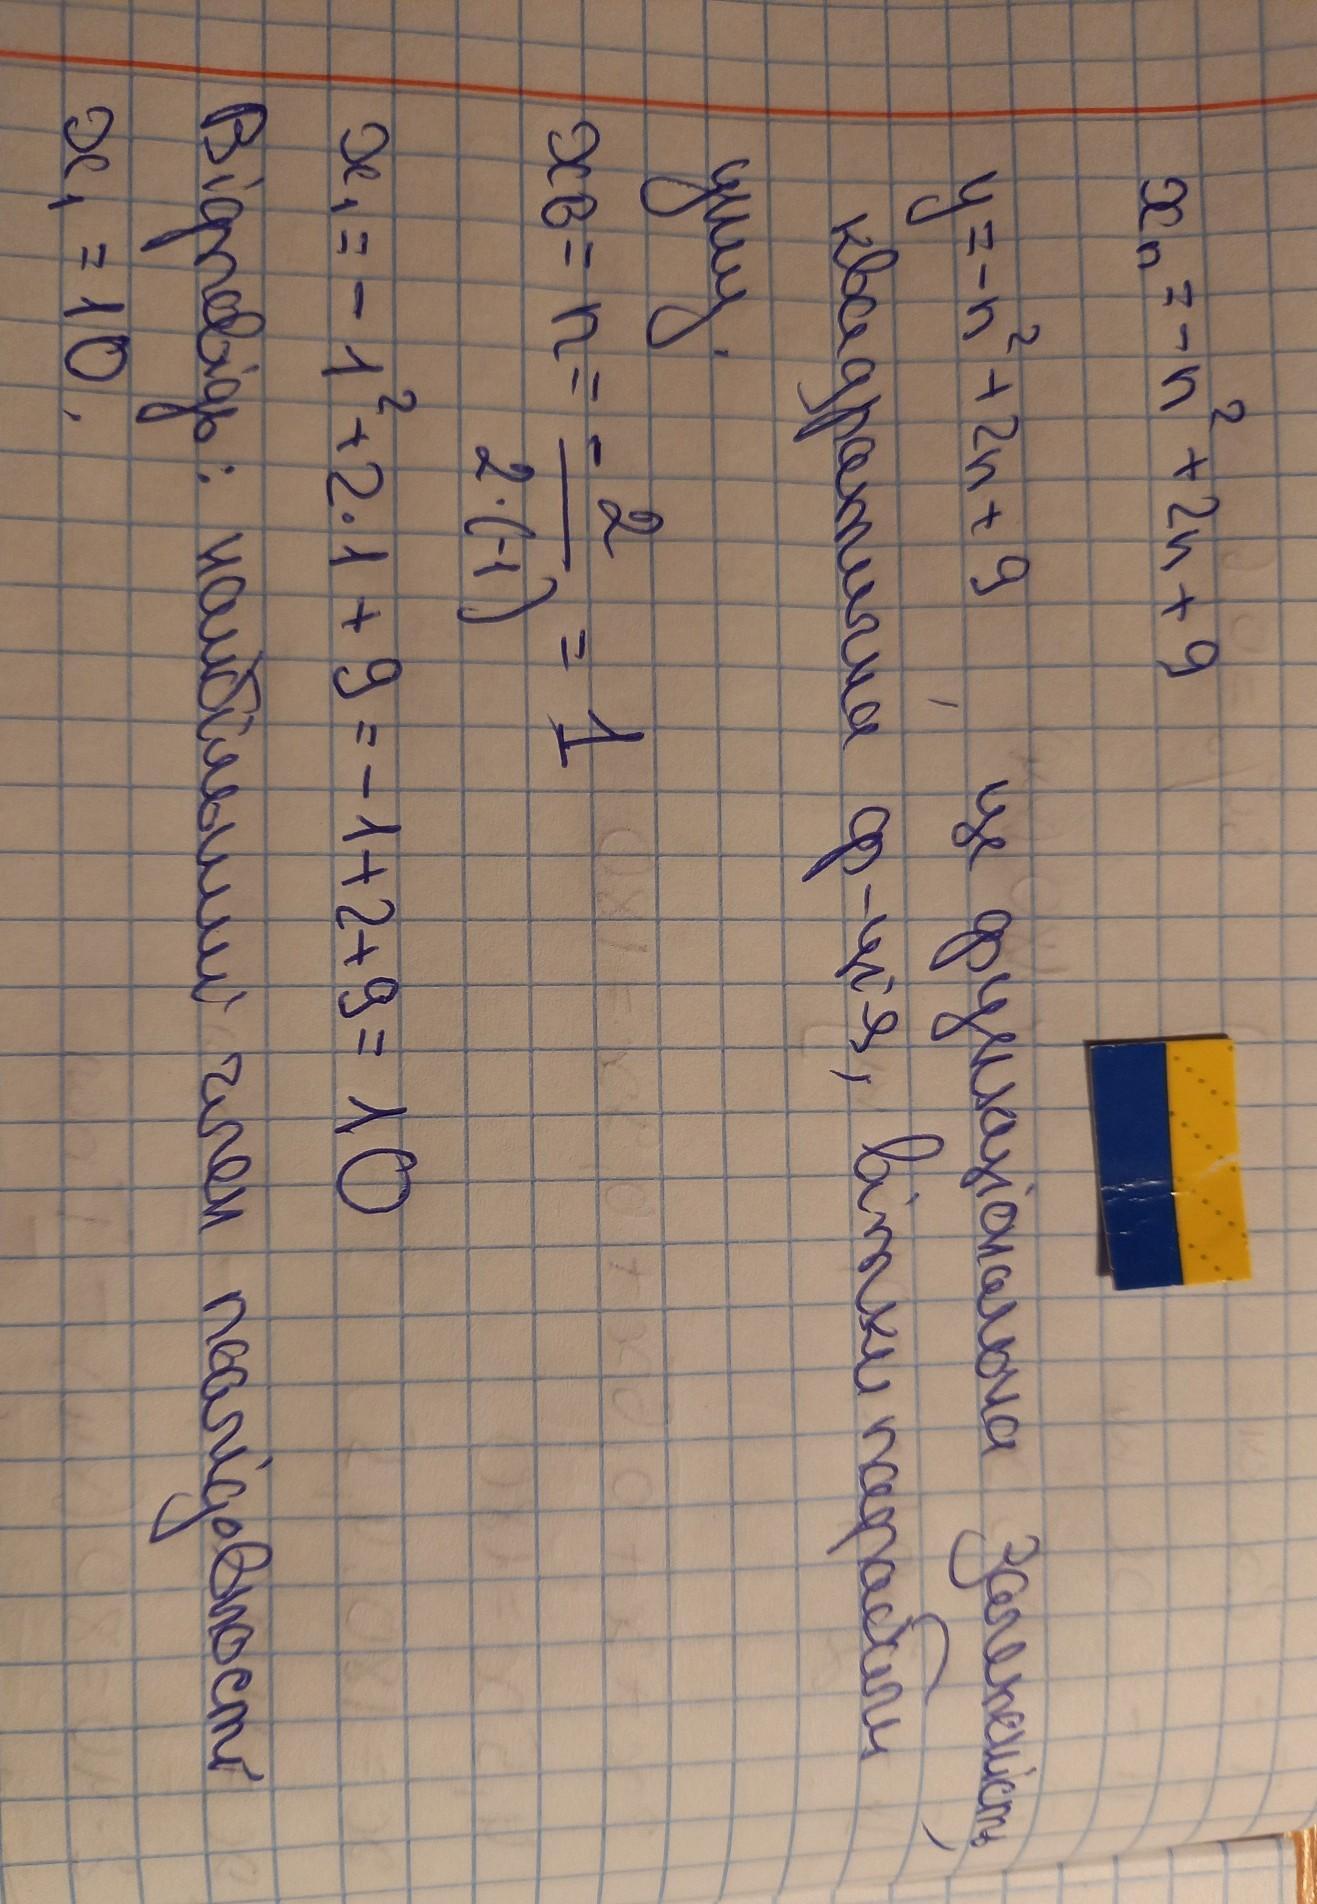 xₙ = -n² + 2n + 9
y = -n² + 2n + 9, це функціональна залежність,
квадратична ф-ція, вітки параболи
униз.
xв = n = - 2/(2·(-1)) = 1
x₁ = -1² + 2·1 + 9 = -1 + 2 + 9 = 10
Відповідь: найбільший член послідовності
x₁ = 10.